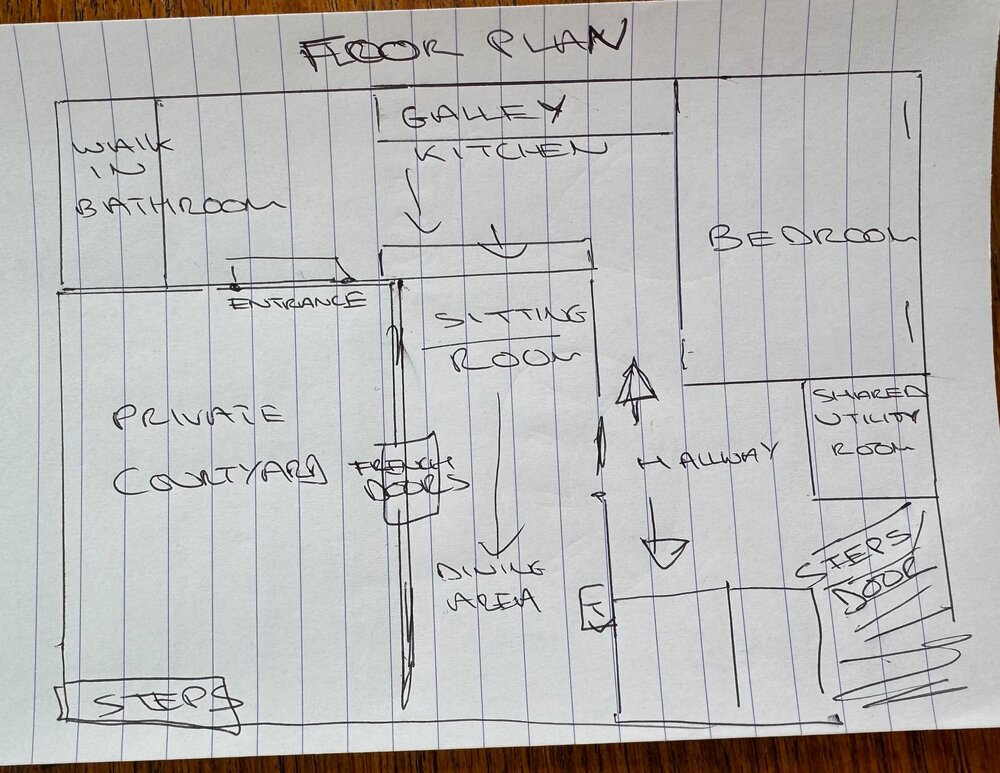 FLOOR PLAN
GALLEY
KITCHEN
WALK
IN
BATHROOM
BEDROOM
ENTRANCE
SITTING
ROOM
PRIVATE
COURTYARD
FRENCH
DOORS
SHARED
UTILITY
ROOM
HALLWAY
STEPS/
DOOR
DINING
AREA
STEPS